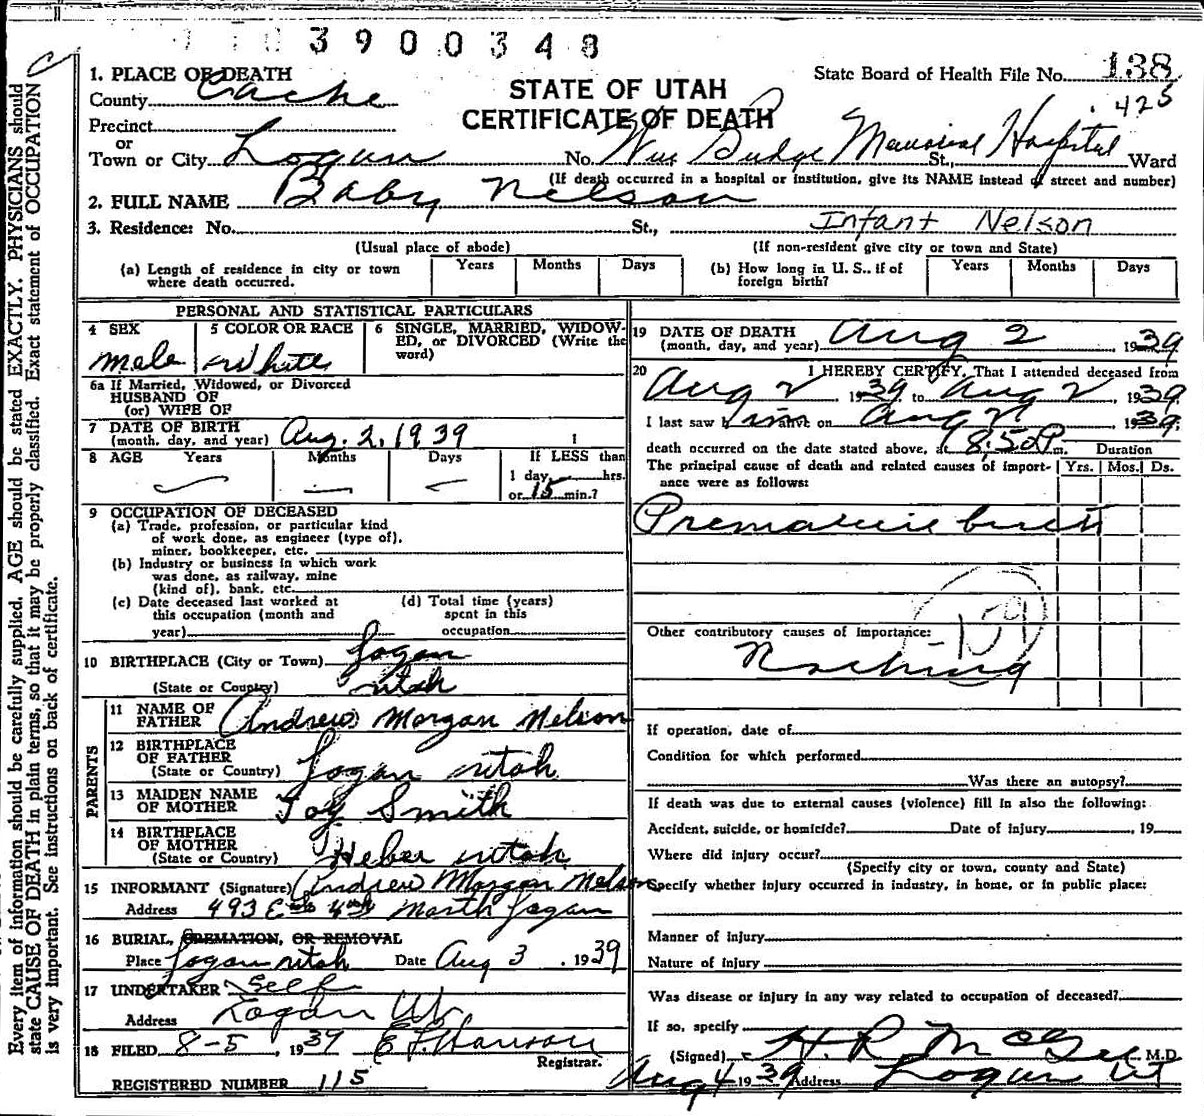 3900348
State Board of Health File No. 138
425
1. PLACE OF DEATH
STATE OF UTAH
CERTIFICATE OF DEATH
County Cache
Precinct
or
Town or City Logan No. Wm Budge Memorial Hospital St., Ward
(If death occurred in a hospital or institution, give its NAME instead of street and number)
2. FULL NAME Baby Nelson
3. Residence: No. St., Infant Nelson
(Usual place of abode) (If non-resident give city or town and State)
(a) Length of residence in city or town where death occurred. Years Months Days
(b) How long in U. S., if of foreign birth? Years Months Days
PERSONAL AND STATISTICAL PARTICULARS
4 SEX 5 COLOR OR RACE 6 SINGLE, MARRIED, WIDOW-
ED, or DIVORCED (Write the
word)
Male White
6a If Married, Widowed, or Divorced
HUSBAND OF
(or) WIFE OF
7 DATE OF BIRTH
(month, day, and year) Aug. 2, 1939
8 AGE Years Months Days If LESS than
1 day, hrs.
or 15 min.?
9 OCCUPATION OF DECEASED
(a) Trade, profession, or particular kind
of work done, as engineer (type of),
miner, bookkeeper, etc.
(b) Industry or business in which work
was done, as railway, mine
(kind of), bank, etc.
(c) Date deceased last worked at
this occupation (month and
year)
(d) Total time (years)
spent in this
occupation
10 BIRTHPLACE (City or Town) Logan
(State or Country) Utah
PARENTS
11 NAME OF
FATHER Andrew Morgan Nelson
12 BIRTHPLACE
OF FATHER
(State or Country) Logan Utah
13 MAIDEN NAME
OF MOTHER Joy Smith
14 BIRTHPLACE
OF MOTHER
(State or Country) Heber Utah
15 INFORMANT (Signature) Andrew Morgan Nelson
Address 493 E 4th North Logan
16 BURIAL, CREMATION, OR REMOVAL
Place Logan Utah Date Aug 3, 1939
17 UNDERTAKER Self
Address Logan Ut
18 FILED 8-5, 1939
Registrar.
REGISTERED NUMBER 115
19 DATE OF DEATH
(month, day, and year) Aug 2, 1939
20 I HEREBY CERTIFY, That I attended deceased from
Aug 2 1939 to Aug 2, 1939
I last saw him alive on Aug 2, 1939
death occurred on the date stated above, at 8:50 P.m. Duration
The principal cause of death and related causes of import-
ance were as follows: Yrs. Mos. Ds.
Premature birth
159
Other contributory causes of importance:
Nothing
If operation, date of
Condition for which performed
Was there an autopsy?
If death was due to external causes (violence) fill in also the following:
Accident, suicide, or homicide? Date of injury , 19
Where did injury occur?
(Specify city or town, county and State)
Specify whether injury occurred in industry, in home, or in public place:
Manner of injury
Nature of injury
Was disease or injury in any way related to occupation of deceased?
If so, specify
(Signed) H. R. McGee M.D.
Aug 4 1939 Address Logan UT
Every item of information should be carefully supplied. AGE should be stated EXACTLY. PHYSICIANS should
state CAUSE OF DEATH in plain terms, so that it may be properly classified. Exact statement of OCCUPATION
is very important. See instructions on back of certificate.